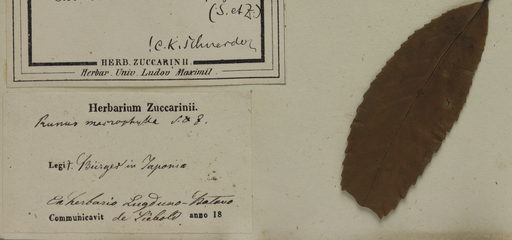 (S. et Z.)
! C. K. Schneider
HERB. ZUCCARINII.
Herbar. Univ. Ludov. Maximil.
Herbarium Zuccarinii.
Prunus macrophylla S. & Z.
Legit. Bürger in Japonia
Ex herbario Lugduno-Batavo
Communicavit de Siebold anno 18